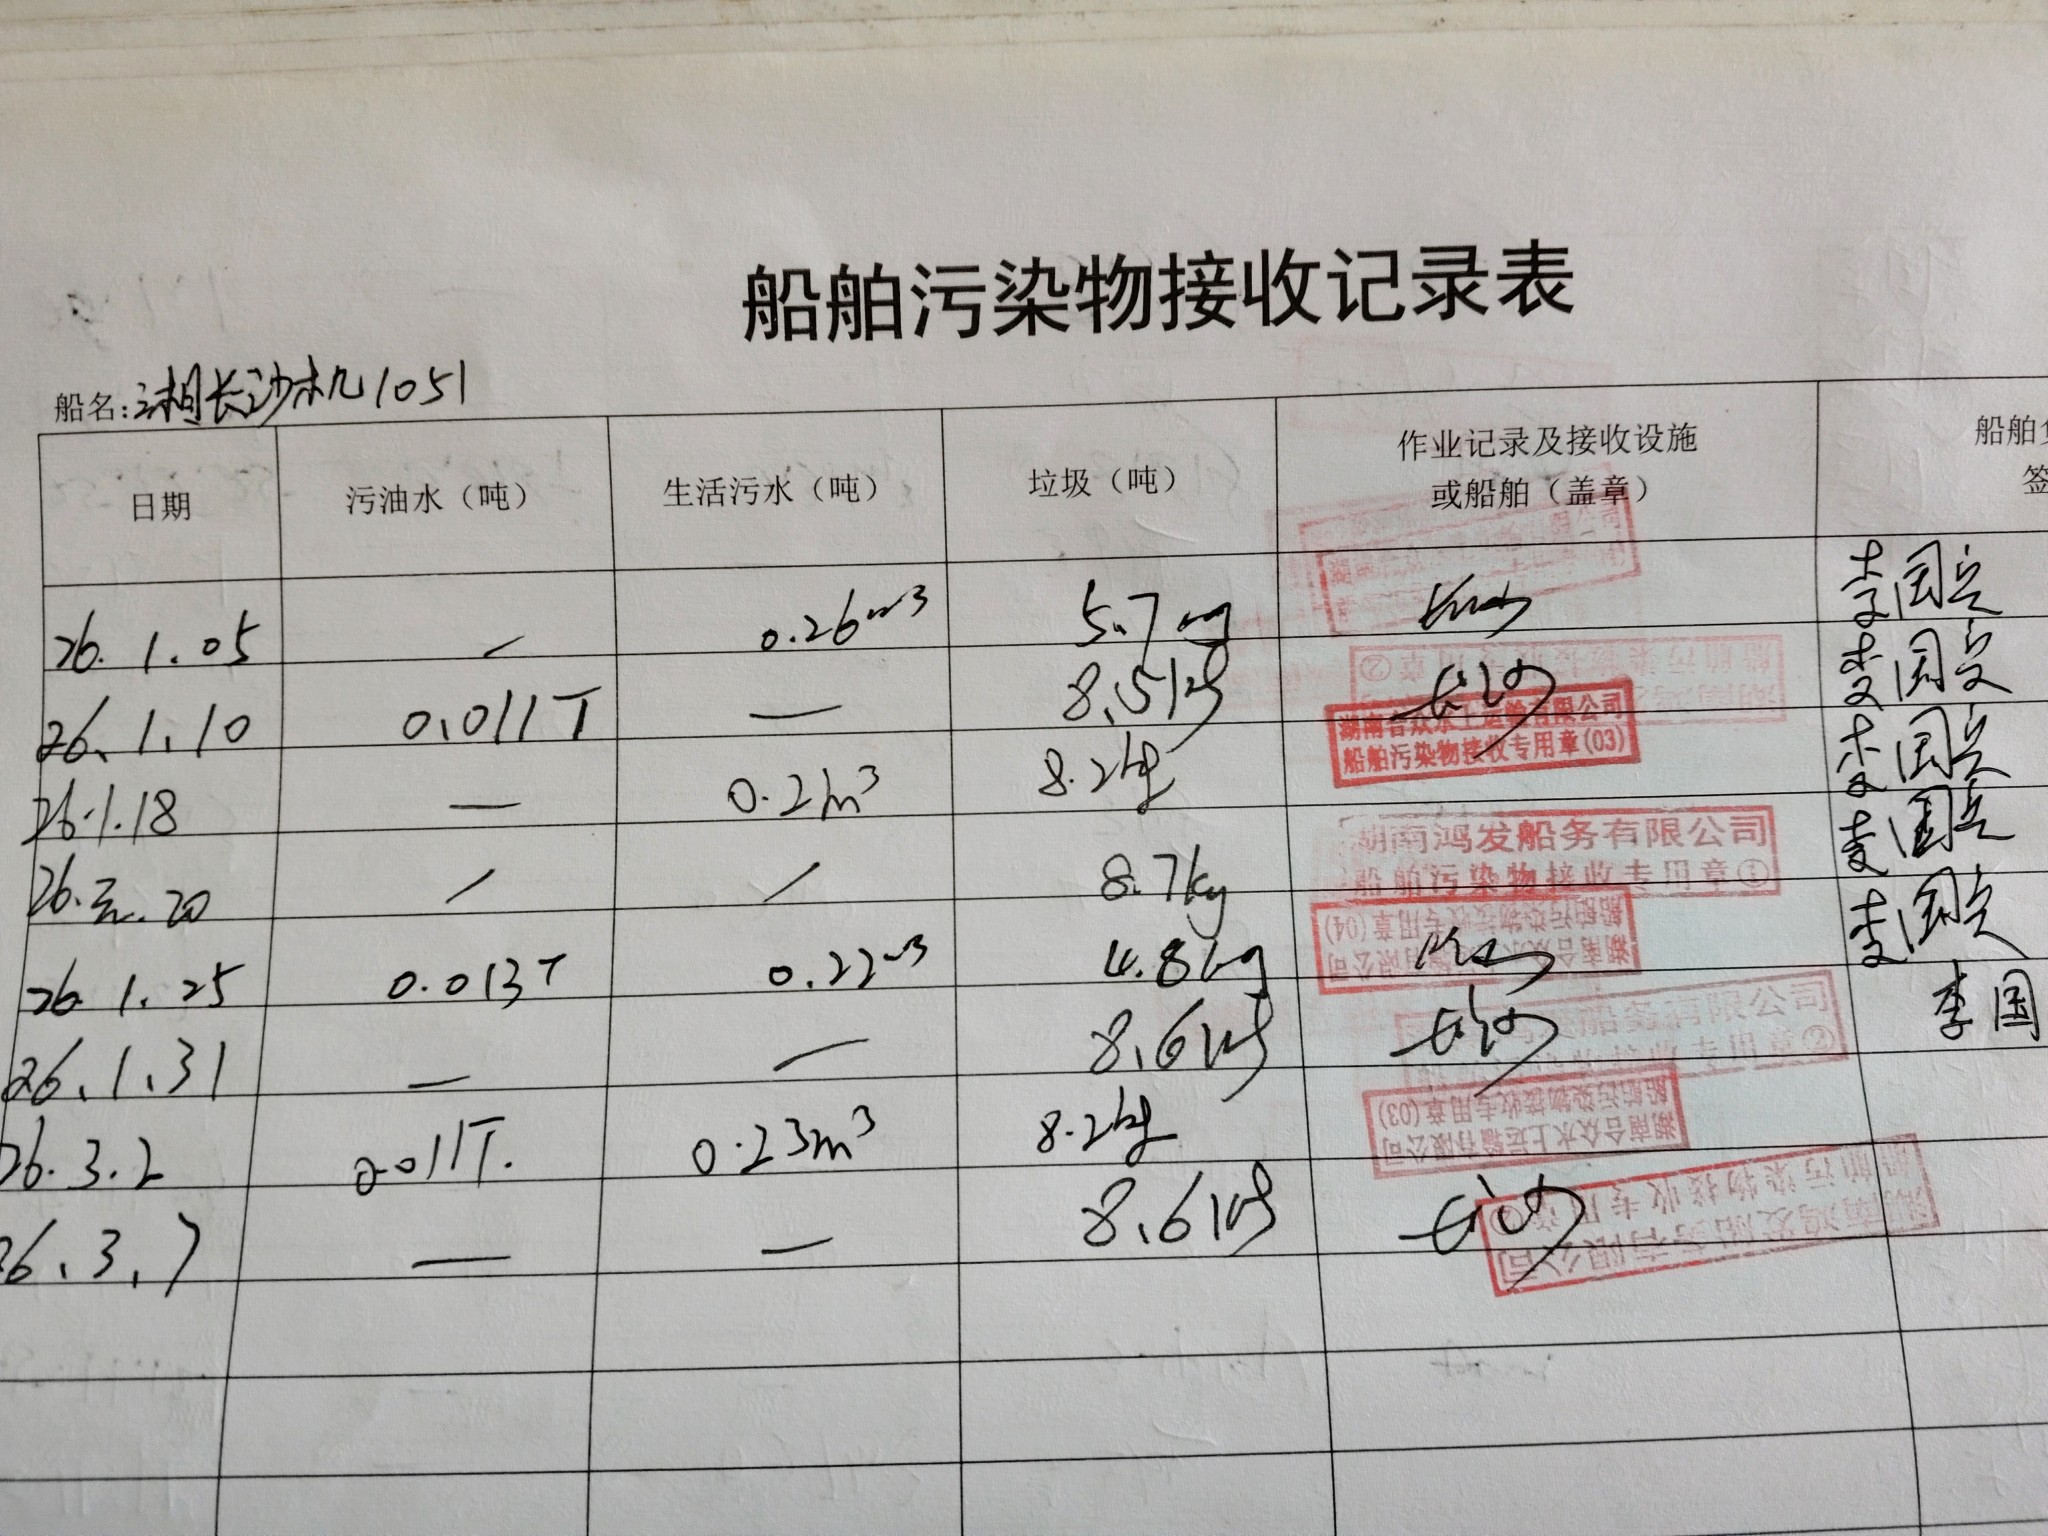 船舶污染物接收记录表
船名:湘长沙机1051
日期 污油水（吨） 生活污水（吨） 垃圾（吨） 作业记录及接收设施或船舶（盖章） 船舶 签
26.1.05 / 0.26m³ 5.7kg 长沙 李国兵
26.1.10 0.011T — 8.5kg 长沙 李国兵
湖南合众水上运输有限公司
船舶污染物接收专用章(03)
26.1.18 — 0.21m³ 8.2kg 李国兵
湖南鸿发船务有限公司
船舶污染物接收专用章①
26. .20 / / 8.7kg 李国兵
湖南合众水上运输有限公司
船舶污染物接收专用章(04)
26.1.25 0.013T 0.22m³ 4.8kg 长沙 李国兵
船务有限公司
专用章②
26.1.31 — — 8.6kg 长沙 李国
湖南合众水上运输有限公司
船舶污染物接收专用章(03)
26.3.2 0.011T. 0.23m³ 8.2kg
湖南鸿发船务有限公司
船舶污染物接收专用章②
26.3.7 — — 8.6kg 长沙